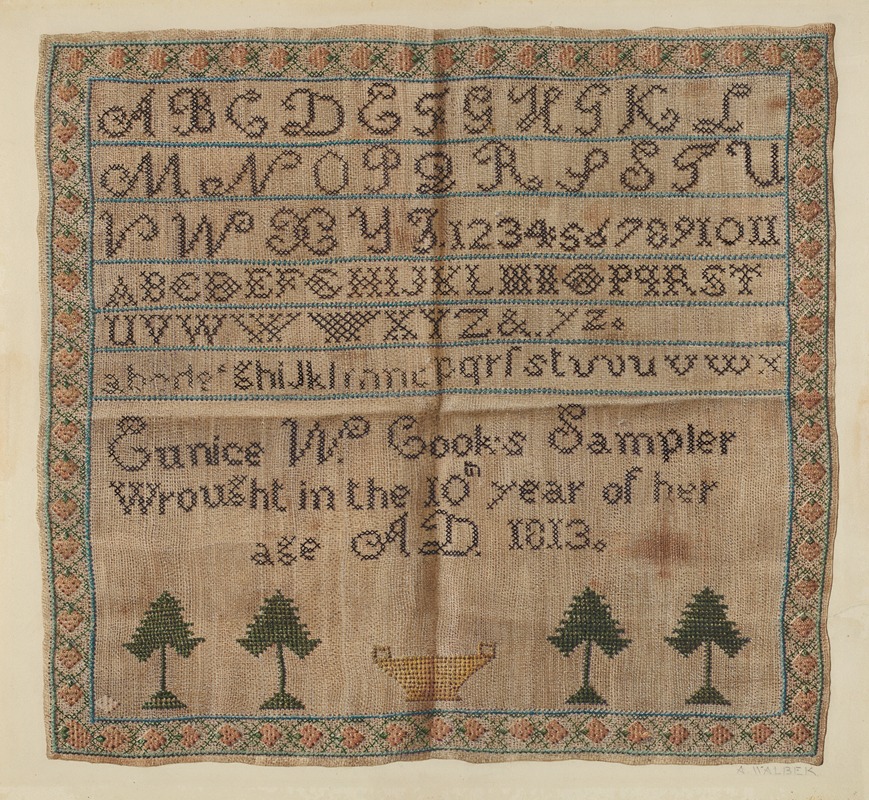 A B C D E F G H G K L
M N O P Q R S S T U
V W X Y Z. 1 2 3 4 5 6 7 8 9 10 11
A B C D E F G H I J K L M N O P Q R S T
U V W X Y Z & y z.
a b c d e f g h i j k l m n o p q r ſ s t v v u v w x
Eunice W. Cook's Sampler
Wrought in the 10th year of her
age AD 1813.
A. WALBEK